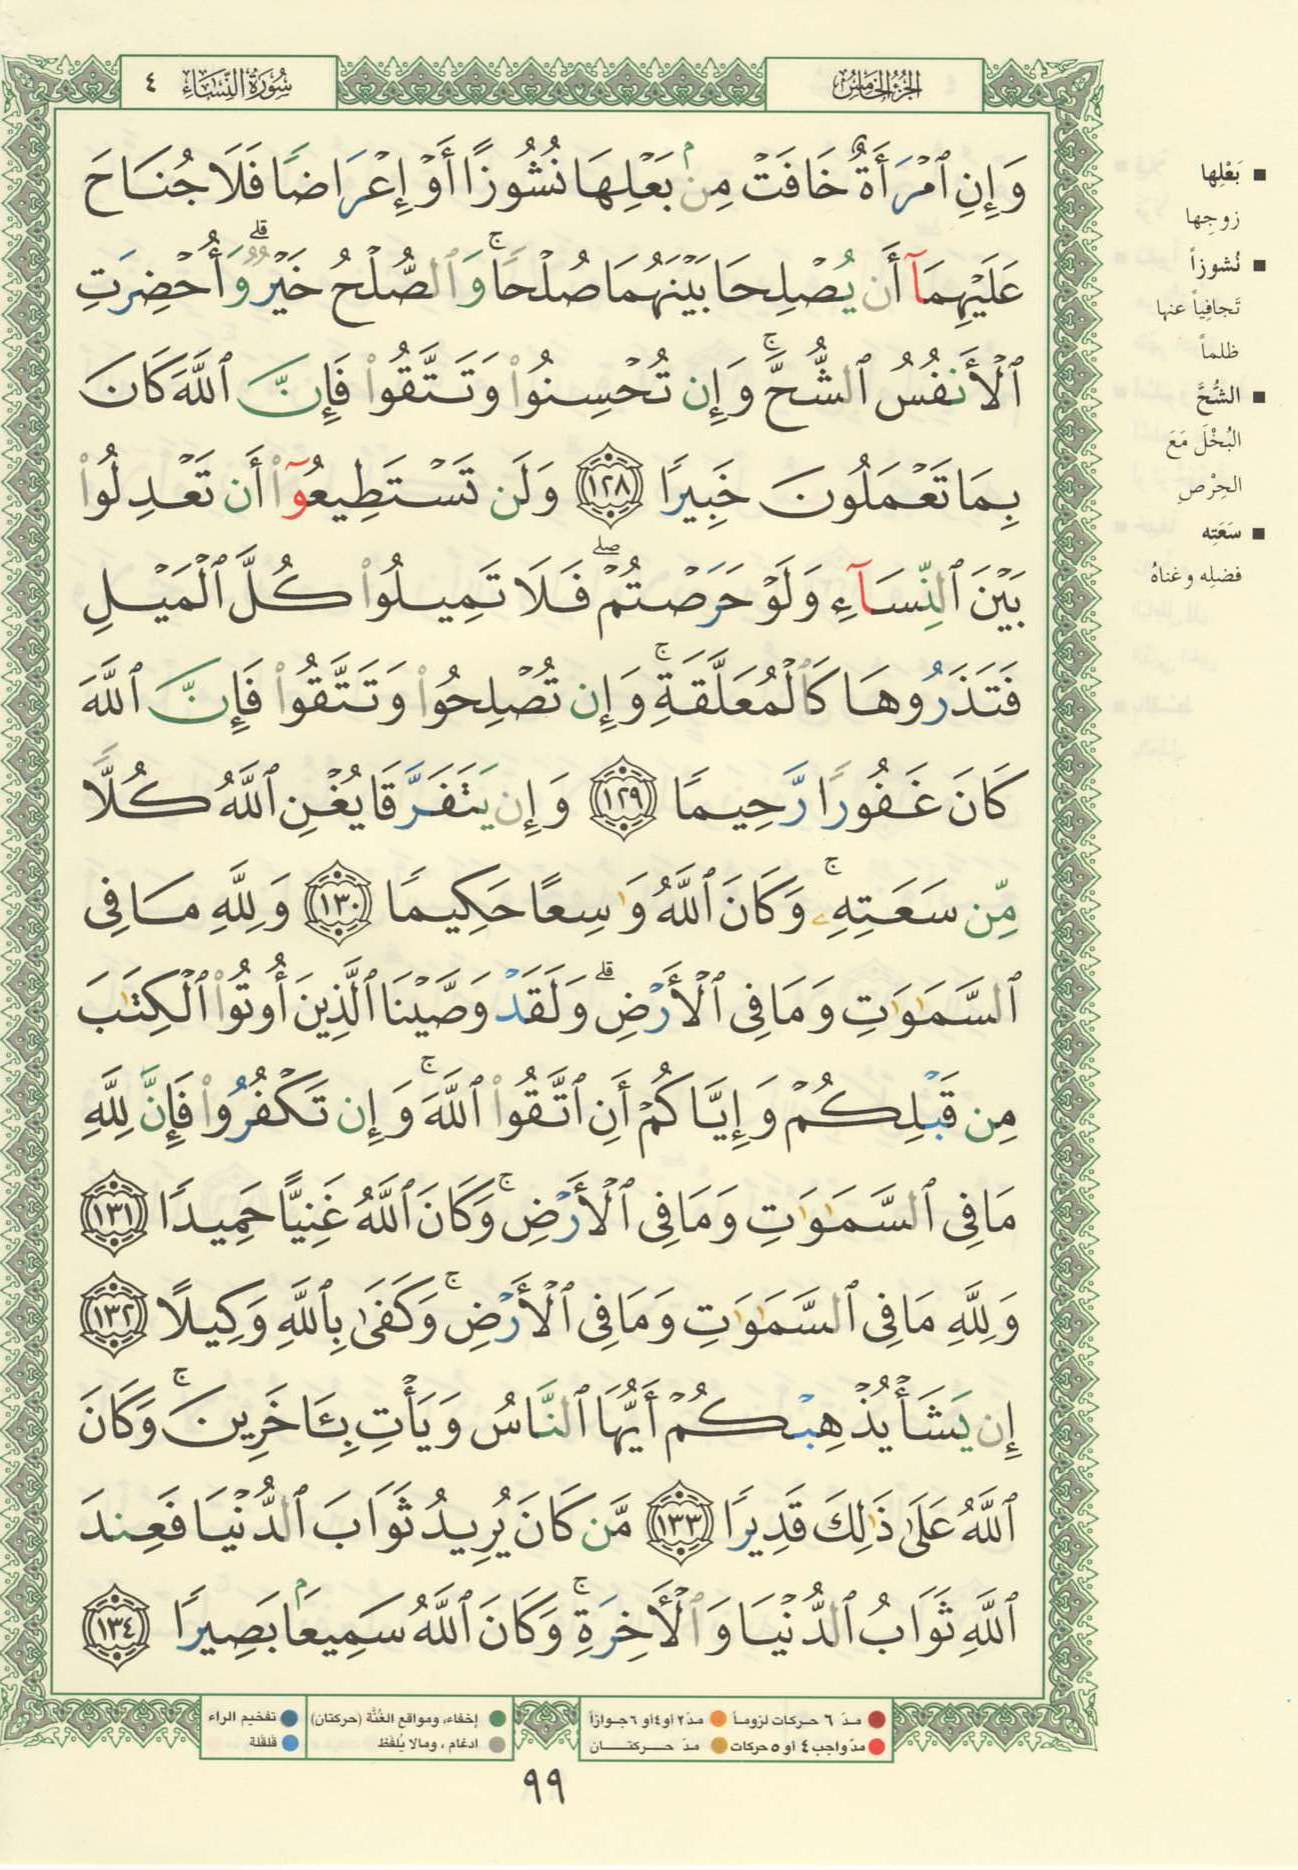 سُورَةُ النِّسَاءِ ٤
الجُزْءُ الخَامِسُ
وَإِنِ ٱمۡرَأَةٌ خَافَتۡ مِنۢ بَعۡلِهَا نُشُوزًا أَوۡ إِعۡرَاضٗا فَلَا جُنَاحَ
عَلَيۡهِمَآ أَن يُصۡلِحَا بَيۡنَهُمَا صُلۡحٗاۚ وَٱلصُّلۡحُ خَيۡرٞۗ وَأُحۡضِرَتِ
ٱلۡأَنفُسُ ٱلشُّحَّۚ وَإِن تُحۡسِنُواْ وَتَتَّقُواْ فَإِنَّ ٱللَّهَ كَانَ
بِمَا تَعۡمَلُونَ خَبِيرٗا ١٢٨ وَلَن تَسۡتَطِيعُوٓاْ أَن تَعۡدِلُواْ
بَيۡنَ ٱلنِّسَآءِ وَلَوۡ حَرَصۡتُمۡۖ فَلَا تَمِيلُواْ كُلَّ ٱلۡمَيۡلِ
فَتَذَرُوهَا كَٱلۡمُعَلَّقَةِۚ وَإِن تُصۡلِحُواْ وَتَتَّقُواْ فَإِنَّ ٱللَّهَ
كَانَ غَفُورٗا رَّحِيمٗا ١٢٩ وَإِن يَتَفَرَّقَا يُغۡنِ ٱللَّهُ كُلّٗا
مِّن سَعَتِهِۦۚ وَكَانَ ٱللَّهُ وَٰسِعًا حَكِيمٗا ١٣٠ وَلِلَّهِ مَا فِي
ٱلسَّمَٰوَٰتِ وَمَا فِي ٱلۡأَرۡضِۗ وَلَقَدۡ وَصَّيۡنَا ٱلَّذِينَ أُوتُواْ ٱلۡكِتَٰبَ
مِن قَبۡلِكُمۡ وَإِيَّاكُمۡ أَنِ ٱتَّقُواْ ٱللَّهَۚ وَإِن تَكۡفُرُواْ فَإِنَّ لِلَّهِ
مَا فِي ٱلسَّمَٰوَٰتِ وَمَا فِي ٱلۡأَرۡضِۚ وَكَانَ ٱللَّهُ غَنِيًّا حَمِيدٗا ١٣١
وَلِلَّهِ مَا فِي ٱلسَّمَٰوَٰتِ وَمَا فِي ٱلۡأَرۡضِۚ وَكَفَىٰ بِٱللَّهِ وَكِيلًا ١٣٢
إِن يَشَأۡ يُذۡهِبۡكُمۡ أَيُّهَا ٱلنَّاسُ وَيَأۡتِ بِـَٔاخَرِينَۚ وَكَانَ
ٱللَّهُ عَلَىٰ ذَٰلِكَ قَدِيرٗا ١٣٣ مَّن كَانَ يُرِيدُ ثَوَابَ ٱلدُّنۡيَا فَعِندَ
ٱللَّهِ ثَوَابُ ٱلدُّنۡيَا وَٱلۡأٓخِرَةِۚ وَكَانَ ٱللَّهُ سَمِيعَۢا بَصِيرٗا ١٣٤
■ بَعْلِها
زوجِها
■ نُشوزاً
تَجافِياً عنها
ظلماً
■ الشُّحَّ
البُخْلَ مَعَ
الحِرْصِ
■ سَعَتِه
فضلِه وغناهُ
مدّ ٦ حركات لزوماً
مدّ ٢ أو ٤ أو ٦ جوازاً
مدّ واجب ٤ أو ٥ حركات
مدّ حركتان
إخفاء، ومواقع الغُنَّة (حركتان)
ادغام، ومالا يُلفَظ
تفخيم الراء
قلقلة
٩٩